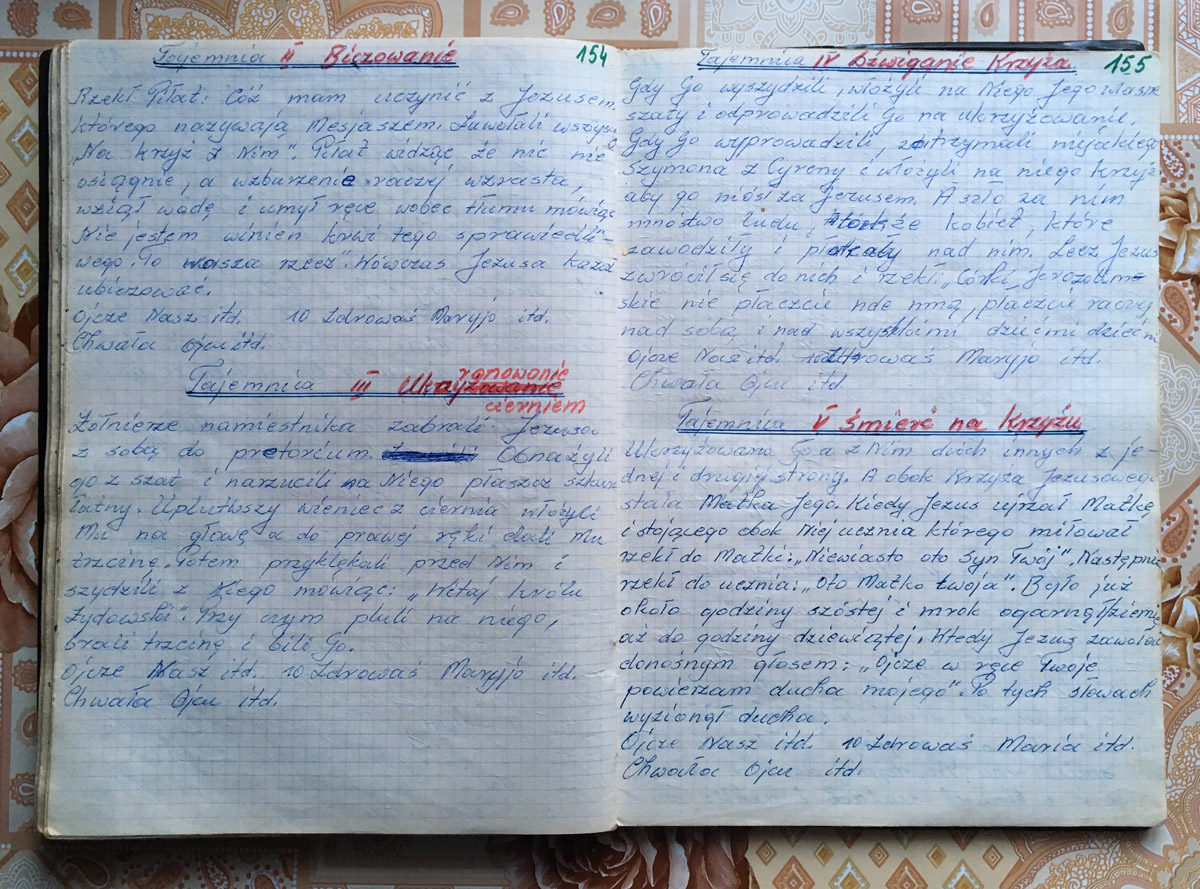 Tajemnia II Biczowanie 154
Rzekł Piłat: Cóż mam uczynić z Jezusem,
którego nazywają Mesjaszem. Zawołali wszysc
„Na krzyż z Nim". Piłat widząc że nic nie
osiągnie, a wzburzenie raczej wzrasta,
wziął wodę i umył ręce wobec tłumu mówiąc
Nie jestem winien krwi tego sprawiedli-
wego. To wasza rzecz". Wówczas Jezusa kazał
ubiczować.
Ojcze Nasz itd. 10 Zdrowaś Maryjo itd.
Chwała Ojcu itd.
Tajemnica III Ukoronowanie
cierniem
Żołnierze namiestnika zabrali Jezusa
z sobą do pretorium. Obnażyli
go z szat i narzucili na Niego płaszcz szkar
łatny. Uplutłszy wieniec z ciernia włożyli
Mu na głowę a do prawej ręki dali Mu
trzcinę. Potem przyklękali przed Nim i
szydzili z Niego mówiąc: „Witaj królu
żydowski". Przy czym pluli na niego,
brali trzcinę i bili Go.
Ojcze Nasz itd. 10 Zdrowaś Maryjo itd.
Chwała Ojcu itd.
Tajemnica IV Dźwiganie Krzyża 155
Gdy Go wyszydzili, włożyli na Niego Jego własne
szaty i odprowadzili Go na ukrzyżowanie.
Gdy Go wyprowadzili, zatrzymali nijakiego
Szymona z Cyreny i włożyli na niego krzyż
aby go niósł za Jezusem. A szło za nim
mnóstwo ludu, także kobiet, które
zawodziły i płakały nad nim. Lecz Jezus
zwrócił się do nich i rzekł: „Córki Jerozolim-
skie nie płaczcie nde mną, płaczcie raczej
nad sobą i nad wszystkimi dziećmi
Ojcze Nasz itd. 10 Zdrowaś Maryjo itd.
Chwała Ojcu itd.
Tajemnica V Śmierć na Krzyżu
Ukrzyżowano Go a z Nim dwóch innych z je-
dnej i drugiej strony. A obok Krzyża Jezusowego
stała Matka Jego. Kiedy Jezus ujrzał Matkę
i stojącego obok Niej ucznia którego miłował
rzekł do Matki: „Niewiasto oto Syn Twój". Następnie
rzekł do ucznia: „Oto Matko twoja". Było już
około godziny szóstej i mrok ogarnął ziemię
aż do godziny dziewiątej. Wtedy Jezus zawołał
donośnym głosem: „Ojcze w ręce Twoje
powierzam ducha mojego". Po tych słowach
wyzionął ducha.
Ojcze Nasz itd. 10 Zdrowaś Maria itd.
Chwała Ojcu itd.